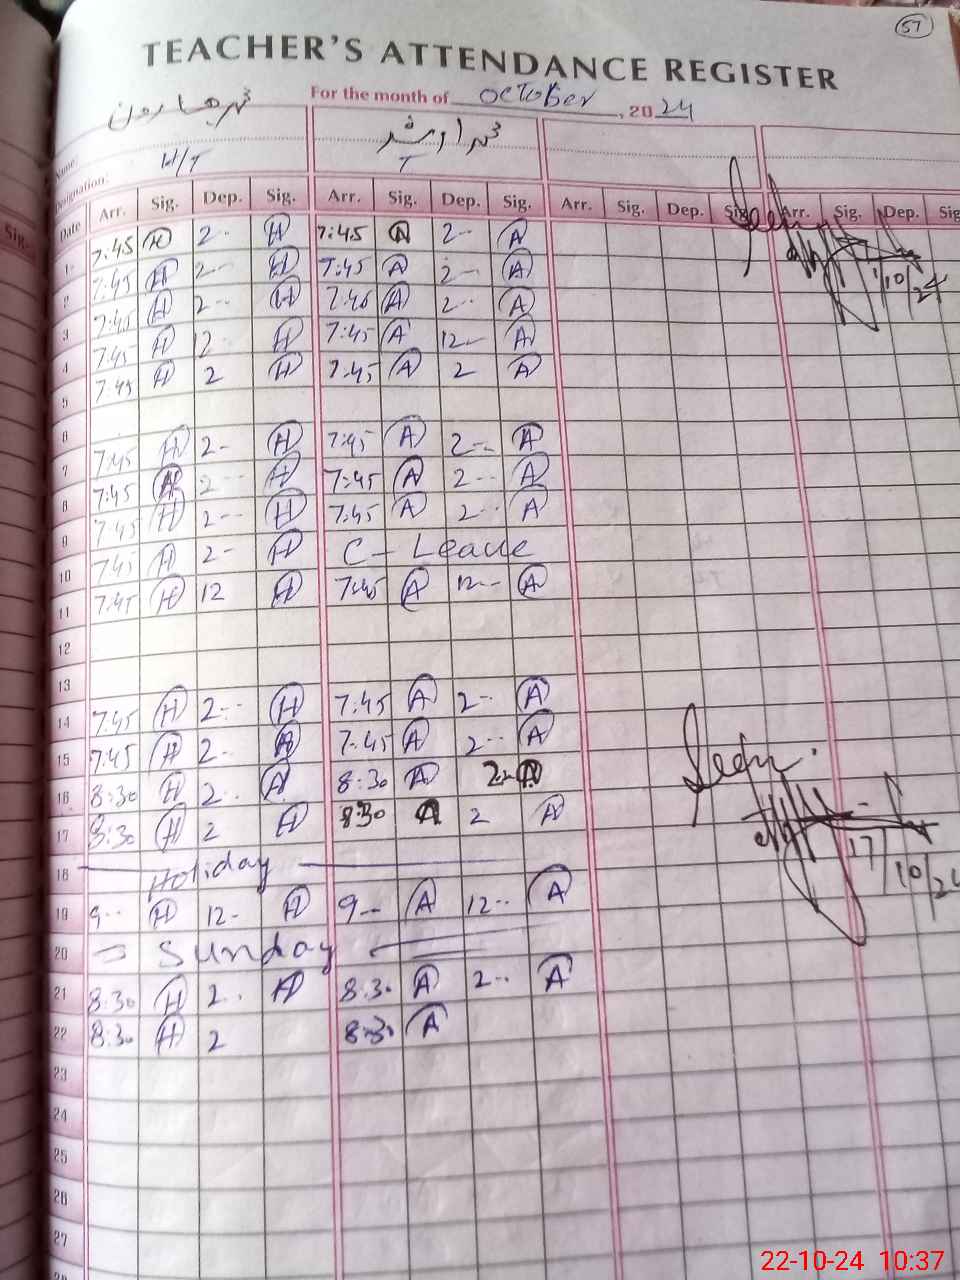 57
TEACHER'S ATTENDANCE REGISTER
For the month of October, 2024
Name: محمد ہارون
Designation: H/T T
Date Arr. Sig. Dep. Sig. Arr. Sig. Dep. Sig. Arr. Sig. Dep. Sig. Arr. Sig. Dep. Sig.
1 7:45 H 2-- H 7:45 A 2-- A
2 7:45 H 2-- H 7:45 A 2-- A
3 7:45 H 2-- H 7:45 A 2-- A
4 7:45 H 12-- H 7:45 A 12-- A
5 7:45 H 2 H 7:45 A 2 A
1/10/24
6
7 7:45 H 2-- H 7:45 A 2-- A
8 7:45 H 2-- H 7:45 A 2-- A
9 7:45 H 2-- H 7:45 A 2-- A
10 7:45 H 2- H C-Leave
11 7:45 H 12 H 7:45 A 12-- A
12
13
14 7:45 H 2-- H 7:45 A 2-- A
15 7:45 H 2-- H 7:45 A 2-- A
16 8:30 H 2-- H 8:30 A 2-- A
17 8:30 H 2 H 8:30 A 2 A
17/10/24
18 Holiday
19 9-- H 12- H 9-- A 12-- A
20 Sunday
21 8:30 H 2-- H 8:30 A 2-- A
22 8:30 H 2 8:30 A
23
24
25
26
27
28
Sig.
22-10-24 10:37